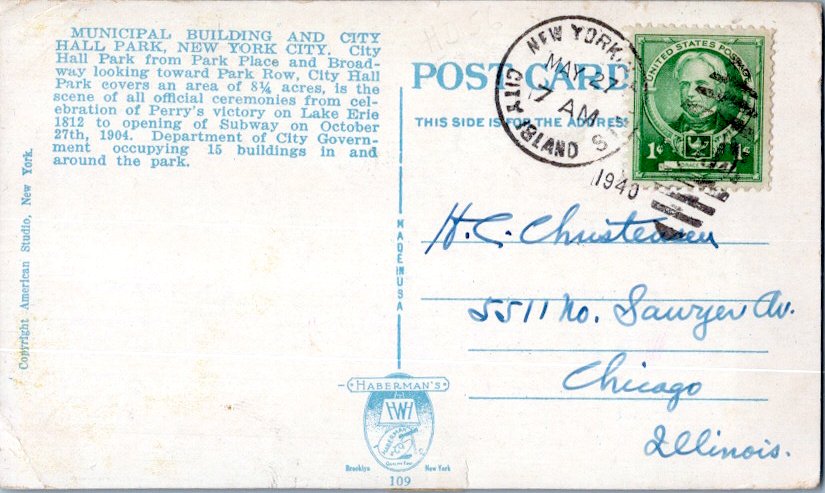 MUNICIPAL BUILDING AND CITY
HALL PARK, NEW YORK CITY. City
Hall Park from Park Place and Broad-
way looking toward Park Row, City Hall
Park covers an area of 8¼ acres, is the
scene of all official ceremonies from cel-
ebration of Perry's victory on Lake Erie
1812 to opening of Subway on October
27th, 1904. Department of City Govern-
ment occupying 15 buildings in and
around the park.
Copyright American Studio, New York.
POST CARD
THIS SIDE IS FOR THE ADDRESS
NEW YORK, N.
MAY 27
7 AM
CITY ISLAND STA
1940
UNITED STATES POSTAGE
1¢ 1¢
HORACE
MADE IN USA
H. C. Christensen
5511 No. Sawyer Av.
Chicago
Illinois.
HABERMAN'S
HWH
HABERMAN'S
QUALITY
Brooklyn New York
109